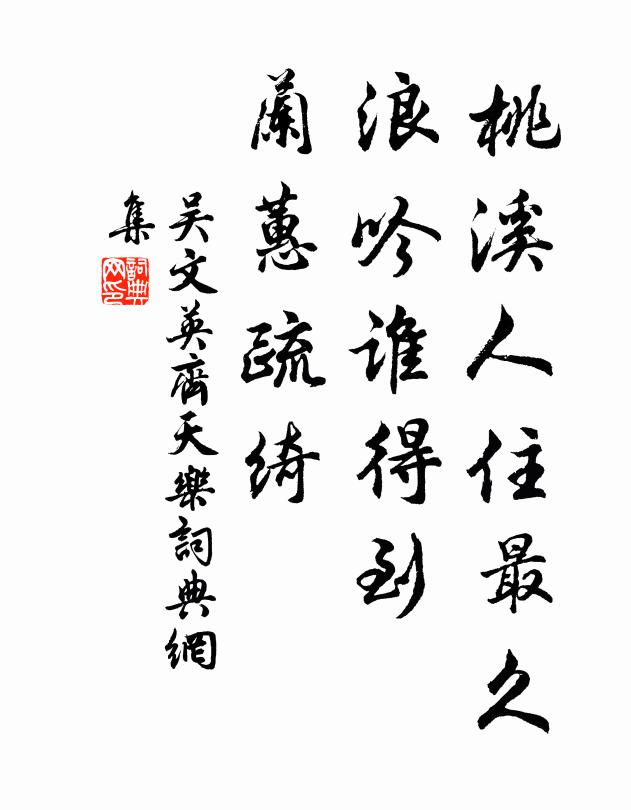 桃溪人住最久
浪吟誰得到
蘭蕙疏綺
吴文英齊天樂詞典網
集
詞典
网印